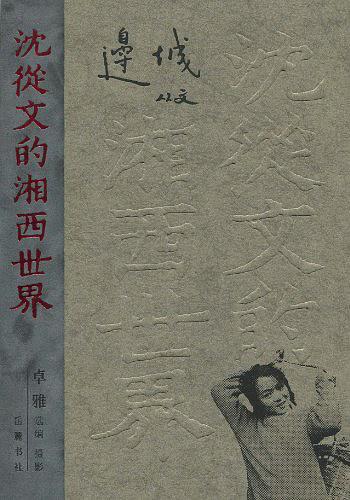 沈從文的湘西世界
邊城
从文
沈從文的
湘西世界
卓雅
选编 摄影
岳麓书社